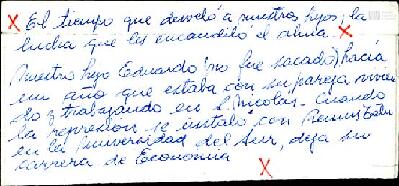 El tiempo que desveló a nuestros hijos; la
lucha que les encandiló el alma.
Nuestro hijo Eduardo (no fue sacado) hacía
un año que estaba con su pareja vivien
do y trabajando en S. Nicolás. Cuando
la represión se instaló con Remus Tetu
en la Universidad del Sur, deja su
carrera de Economía